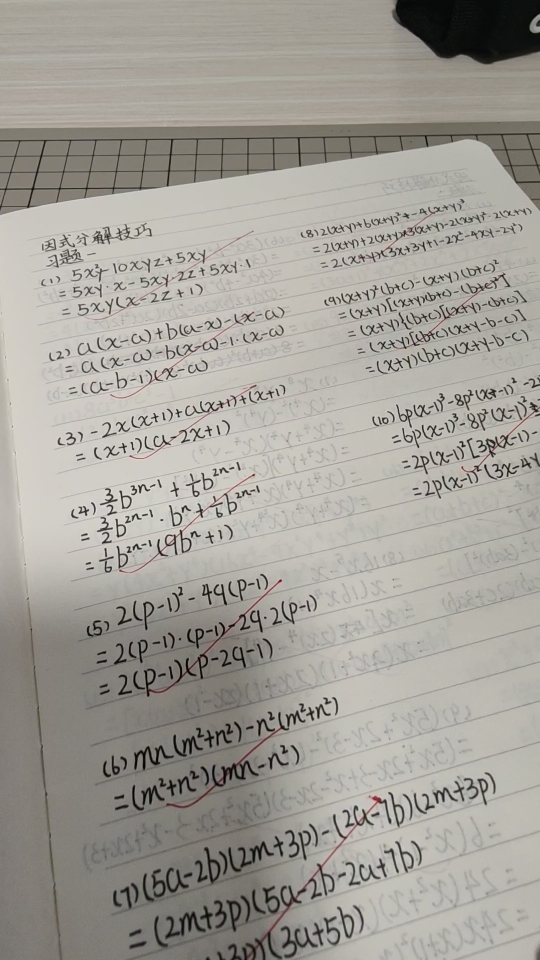 因式分解技巧
习题一
(1) 5x²y-10xyz+5xy
= 5xy·x-5xy·2z+5xy·1
= 5xy(x-2z+1)
(2) a(x-a)+b(a-x)-(x-a)
= a(x-a)-b(x-a)-1·(x-a)
= (a-b-1)(x-a)
(3) -2x(x+1)+a(x+1)+(x+1)
= (x+1)(a-2x+1)
(4) 3/2 b^{3n-1} + 1/6 b^{2n-1}
= 3/2 b^{2n-1} · bⁿ + 1/6 b^{2n-1}
= 1/6 b^{2n-1} (9bⁿ+1)
(5) 2(p-1)² - 4q(p-1)
= 2(p-1)·(p-1)-2q·2(p-1)
= 2(p-1)(p-2q-1)
(6) mn(m²+n²)-n²(m²+n²)
= (m²+n²)(mn-n²)
(7) (5a-2b)(2m+3p)-(2a-7b)(2m+3p)
= (2m+3p)(5a-2b-2a+7b)
+3p)(3a+5b)
= 2(x+y)(3x+3y+1-2x²-4xy-2y²)
(9) (x+y)²(b+c)-(x+y)(b+c)²
= (x+y)[(x+y)(b+c)-(b+c)²]
= (x+y)(b+c)(x+y-b-c)
(10) 6p(x-1)³-8p²(x-1)²-2
= 6p(x-1)³-8p²(x-1)²
= 2p(x-1)²[3p(x-1)-
= 2p(x-1)²(3x-4